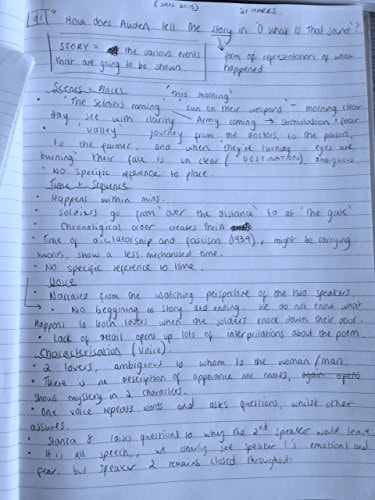 (Jan 2013)
21 MARKS
Q1" How does Auden tell the story in 'O What is That Sound'?
STORY = the various events
that are going to be shown.
form of representation of what
happened
Scenes + Places "This morning"
• 'The soldiers coming' 'sun on their weapons' - morning clear
day see with clarity Army coming → stimulation + fear
• 'valley' journey from the doctors, to the parson,
to the farmer, and when 'they're turning' eyes are
burning' their fate is un clear (DESTINATION) ambiguous
• No specific reference to place.
Time + Sequence
• Happens within mins.
• Soldiers go from 'over the distance' to at 'the gate'
• Chronological order creates
• Time of dictatorship and fascism (1934), might be carrying
swords, show a less mechanised time.
• No specific reference to time.
Voice
• Narrated from the watching perspective of the two speakers
• No beggining to story and ending. We do not know what
happens to both lovers when the soldiers knock down their door.
• Lack of detail opens up lots of interpritations about the poem
Characterisation (Voice)
• 2 lovers, ambiguous to whom is the woman/man.
• There is no description of apperance nor names,
shows mystery in 2 characters.
• One voice repeats words and asks questions, whilst other
assures.
• Stanza 8 raises questions to why the 2nd speaker would leave
• It is all speech, we clearly see speaker 1's emotions and
fear, but speaker 2 remains closed throughout.